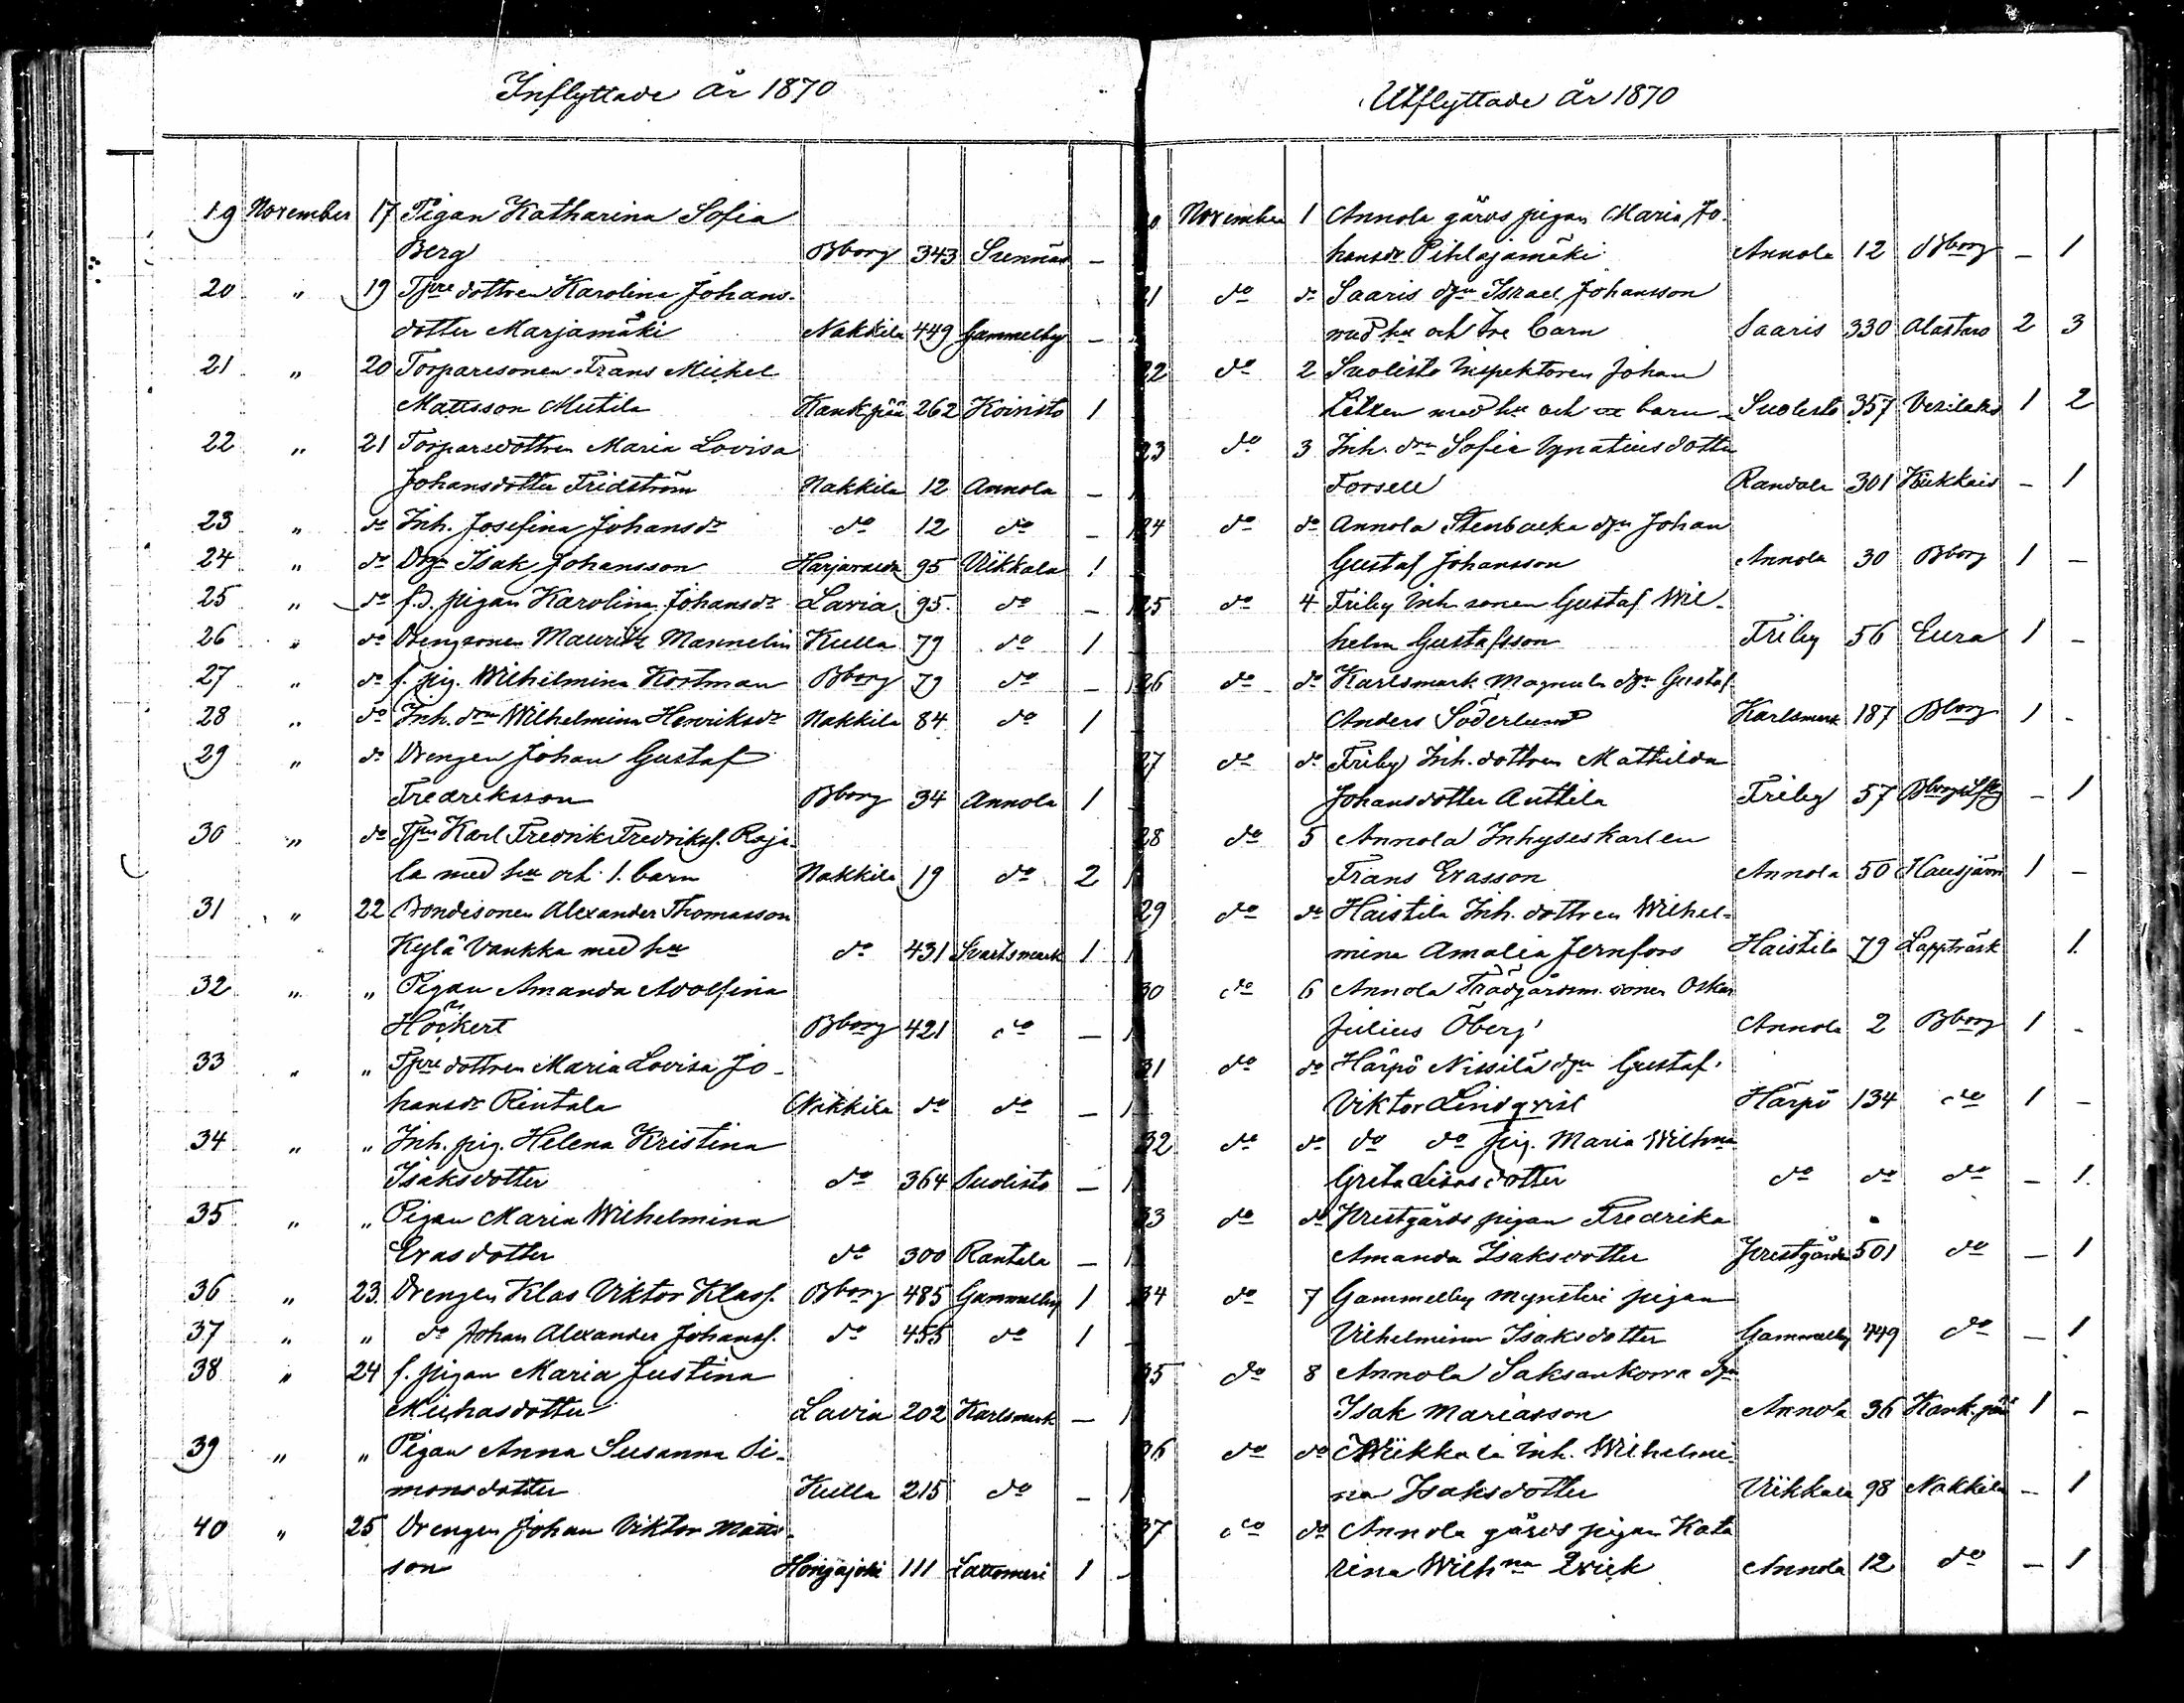 Inflyttade år 1870
19 November 17 Pigan Katharina Sofia
Berg Bborg 343 Svennäs –
20 " 19 Tpre dottren Karolina Johans-
dotter Marjamäki Nakkila 449 Gammelby –
21 " 20 Torparesonen Frans Mickel
Mattsson Mutila Kankpää 262 Koivisto 1
22 " 21 Torparedottren Maria Lovisa
Johansdotter Fridström Nakkila 12 Annola –
23 " do Inh. Josefina Johansdr do 12 do –
24 " do Drgn Isak Johansson Harjavalda 95 Viikkala 1
25 " do f.d. pigan Karolina Johansdr Lavia 95 do –
26 " do Drengsonen Mauritz Mannelin Kulla 79 do 1
27 " do f. pig. Wilhelmina Kortman Bborg 79 do –
28 " do Inh. drn Wilhelmina Henriksdr Nakkila 84 do 1
29 " do Drengen Johan Gustaf
Fredriksson Bborg 34 Annola 1
30 " do Tprn Karl Fredrik Fredrikss. Raja-
la med hu och 1. barn Nakkila 19 do 2
31 " 22 Bondesonen Alexander Thomasson
Kylä Vankka med hu do 431 Svartsmark 1
32 " " Pigan Amanda Adolfina
Höckert Bborg 421 do –
33 " " Tpre dottren Maria Lovisa Jo-
hansdr Rintala Nakkila do do –
34 " " Inh. pig. Helena Kristina
Isaksdotter do 364 Suolisto –
35 " " Pigan Maria Wilhelmina
Erasdotter do 300 Rantala –
36 " 23 Drengen Klas Viktor Klass. Bborg 485 Gammelby 1
37 " " do Johan Alexander Johanss. do 455 do 1
38 " 24 f. pigan Maria Justina
Michasdotter Lavia 202 Karlsmark –
39 " " Pigan Anna Susanna Si-
monsdotter Kulla 215 do –
40 " 25 Drengen Johan Viktor Matts-
son Hongajoki 111 Lattomeri 1
Utflyttade år 1870
20 November 1 Annola gårds pigan Maria Jo-
hansdr Pihlajamäki Annola 12 Bborg – 1
21 do do Saaris dgn Israel Johansson
med hu och tre barn Saaris 330 Alastaro 2 3
22 do 2 Suolisto Inspektoren Johan
med hu och barn Suolisto 357 Vesilaks 1 2
23 do 3 Inh. drn Sofia Ignatiusdotter
Forsell Randala 301 – 1
24 do do Annola Stenbacka dgn Johan
Gustaf Johansson Annola 30 Bborg 1 –
25 do 4 Friby Inh. sonen Gustaf Wil-
helm Gustafsson Friby 56 Eura 1 –
26 do do Karlsmark Magnula dgn Gustaf
Anders Söderlund Karlsmark 187 Bborg 1 –
27 do do Friby Inh. dottren Mathilda
Johansdotter Anttila Friby 57 – 1
28 do 5 Annola Inhyseskarlen
Frans Erasson Annola 50 Hausjärvi 1 –
29 do do Haistila Inh. dottren Wilhel-
mina Amalia Jernfors Haistila 79 Lappträsk 1
30 do 6 Annola Trädgårdsm. sonen Oskar
Julius Öberg Annola 2 Bborg 1 –
31 do do Härpö Nissilä dgn Gustaf
Viktor Lindqvist Härpö 134 do 1 –
32 do do do do pig. Maria Wilhna
Greta Lisasdotter do do do – 1
33 do do Krestgårds pigan Fredrika
Amanda Isaksdotter Krestgårds 501 do – 1
34 do 7 Gammelby Mynsteri pigan
Vilhelmina Isaksdotter Gammelby 449 do – 1
35 do 8 Annola Saksankorva dgn
Isak Mariasson Annola 36 Kank.pää 1 –
36 do do Wiikkala Inh. Wilhelmi-
na Isaksdotter Viikkala 98 Nakkila – 1
37 do do Annola gårds pigan Kata
rina Wilhna Qvick Annola 12 do – 1